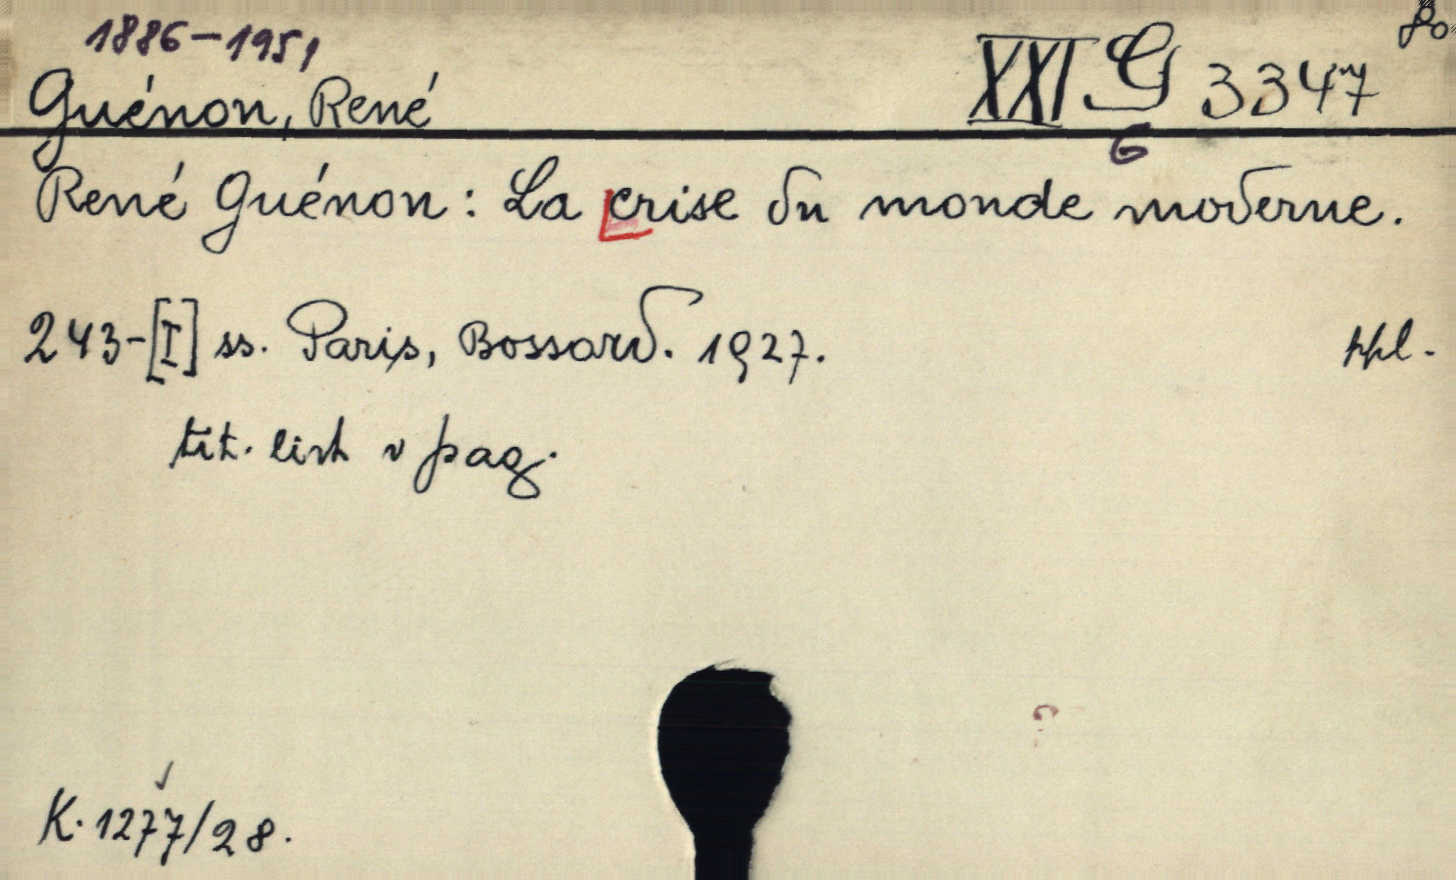 1886-1951
Guénon, René XXI G 3347
G
René Guénon: La crise du monde moderne.
243-[I] ss. Paris, Bossard. 1927. ppl.
tit. list v pag.
K. 1277/28.